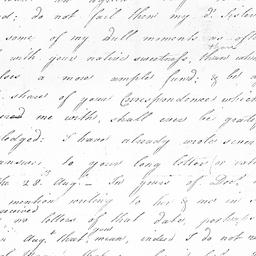 d; do not fail then my d. Sister
some of my dull moments as often
with your native sweetness, than what
does a more ample fund; & be a
share of your Correspondence which
me with, shall ever be grate
ledged: I have already wrote seven
answer to your long letter
the 28th Aug. — In yours of Dec
mention writing to her & me in
received
no letters of that date, perhaps
you
in Aug. that mean, indeed I do not